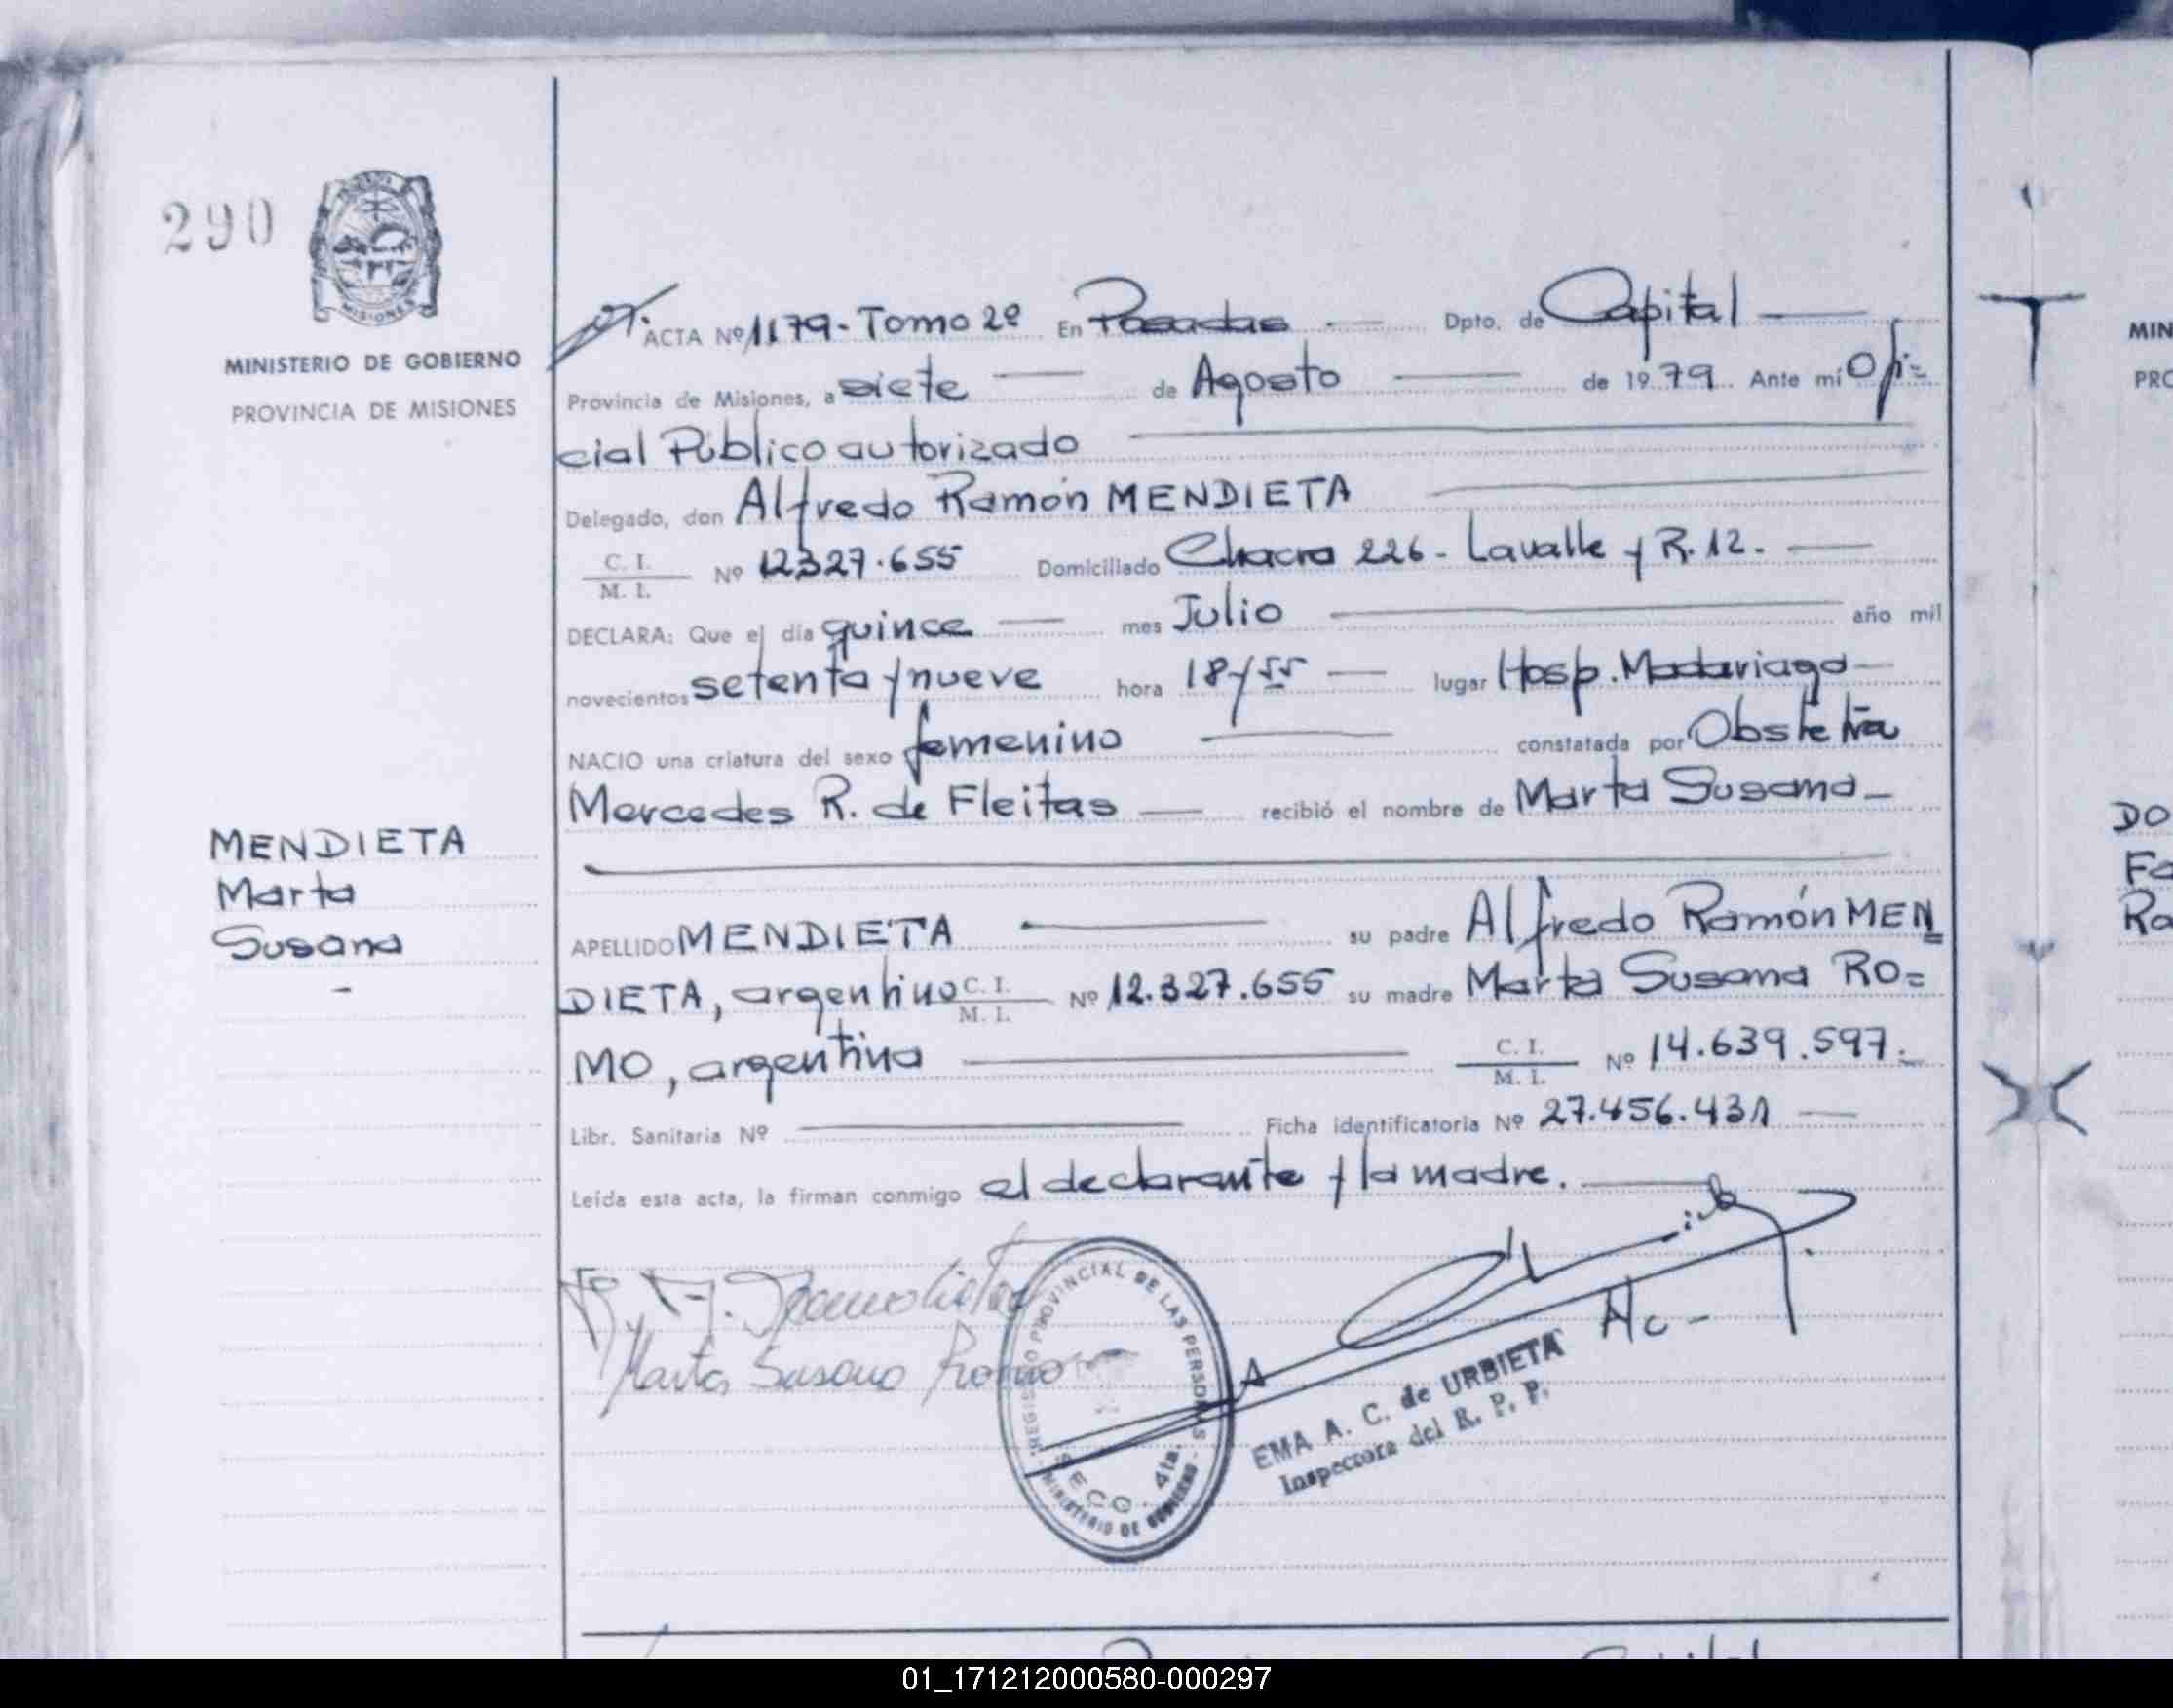 290
MISIONES
MINISTERIO DE GOBIERNO
PROVINCIA DE MISIONES
MENDIETA
Marta
Susana
ACTA Nº 1179 - Tomo 2º En Posadas Dpto. de Capital
Provincia de Misiones, a siete de Agosto de 1979 Ante mí Ofi=
cial Público autorizado
Delegado, don Alfredo Ramón MENDIETA
C. I. / M. I. Nº 12327.655 Domiciliado Chacra 226 - Lavalle y R. 12.
DECLARA: Que el día quince mes Julio año mil
novecientos setenta y nueve hora 18 y 55 lugar Hosp. Madariaga
NACIO una criatura del sexo femenino constatada por Obstetra
Mercedes R. de Fleitas recibió el nombre de Marta Susana
APELLIDO MENDIETA su padre Alfredo Ramón MEN
DIETA, argentino C. I. / M. I. Nº 12.327.655 su madre Marta Susana RO=
MO, argentina C. I. / M. I. Nº 14.639.597.
Libr. Sanitaria Nº Ficha identificatoria Nº 27.456.431
Leída esta acta, la firman conmigo el declarante y la madre.
Marta Susana Romo
REGISTRO PROVINCIAL DE LAS PERSONAS
SECC. 4ta.
MINISTERIO DE GOBIERNO
EMA A. C. de URBIETA
Inspectora del R. P. P.
MIN
PRO
DO
Fa
Ra
01_171212000580-000297